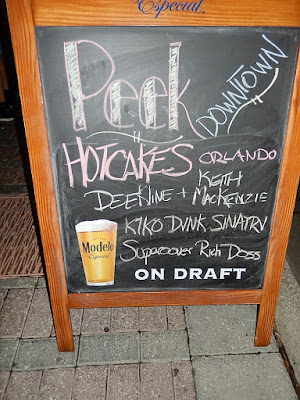 Especial.
Peek
DOWNTOWN
HOTCAKES ORLANDO
KEITH
DEEKLINE + MACKENZIE
KIKO DVNK SINATRV
Supersover Rich DOSS
Modelo
Especial
ON DRAFT